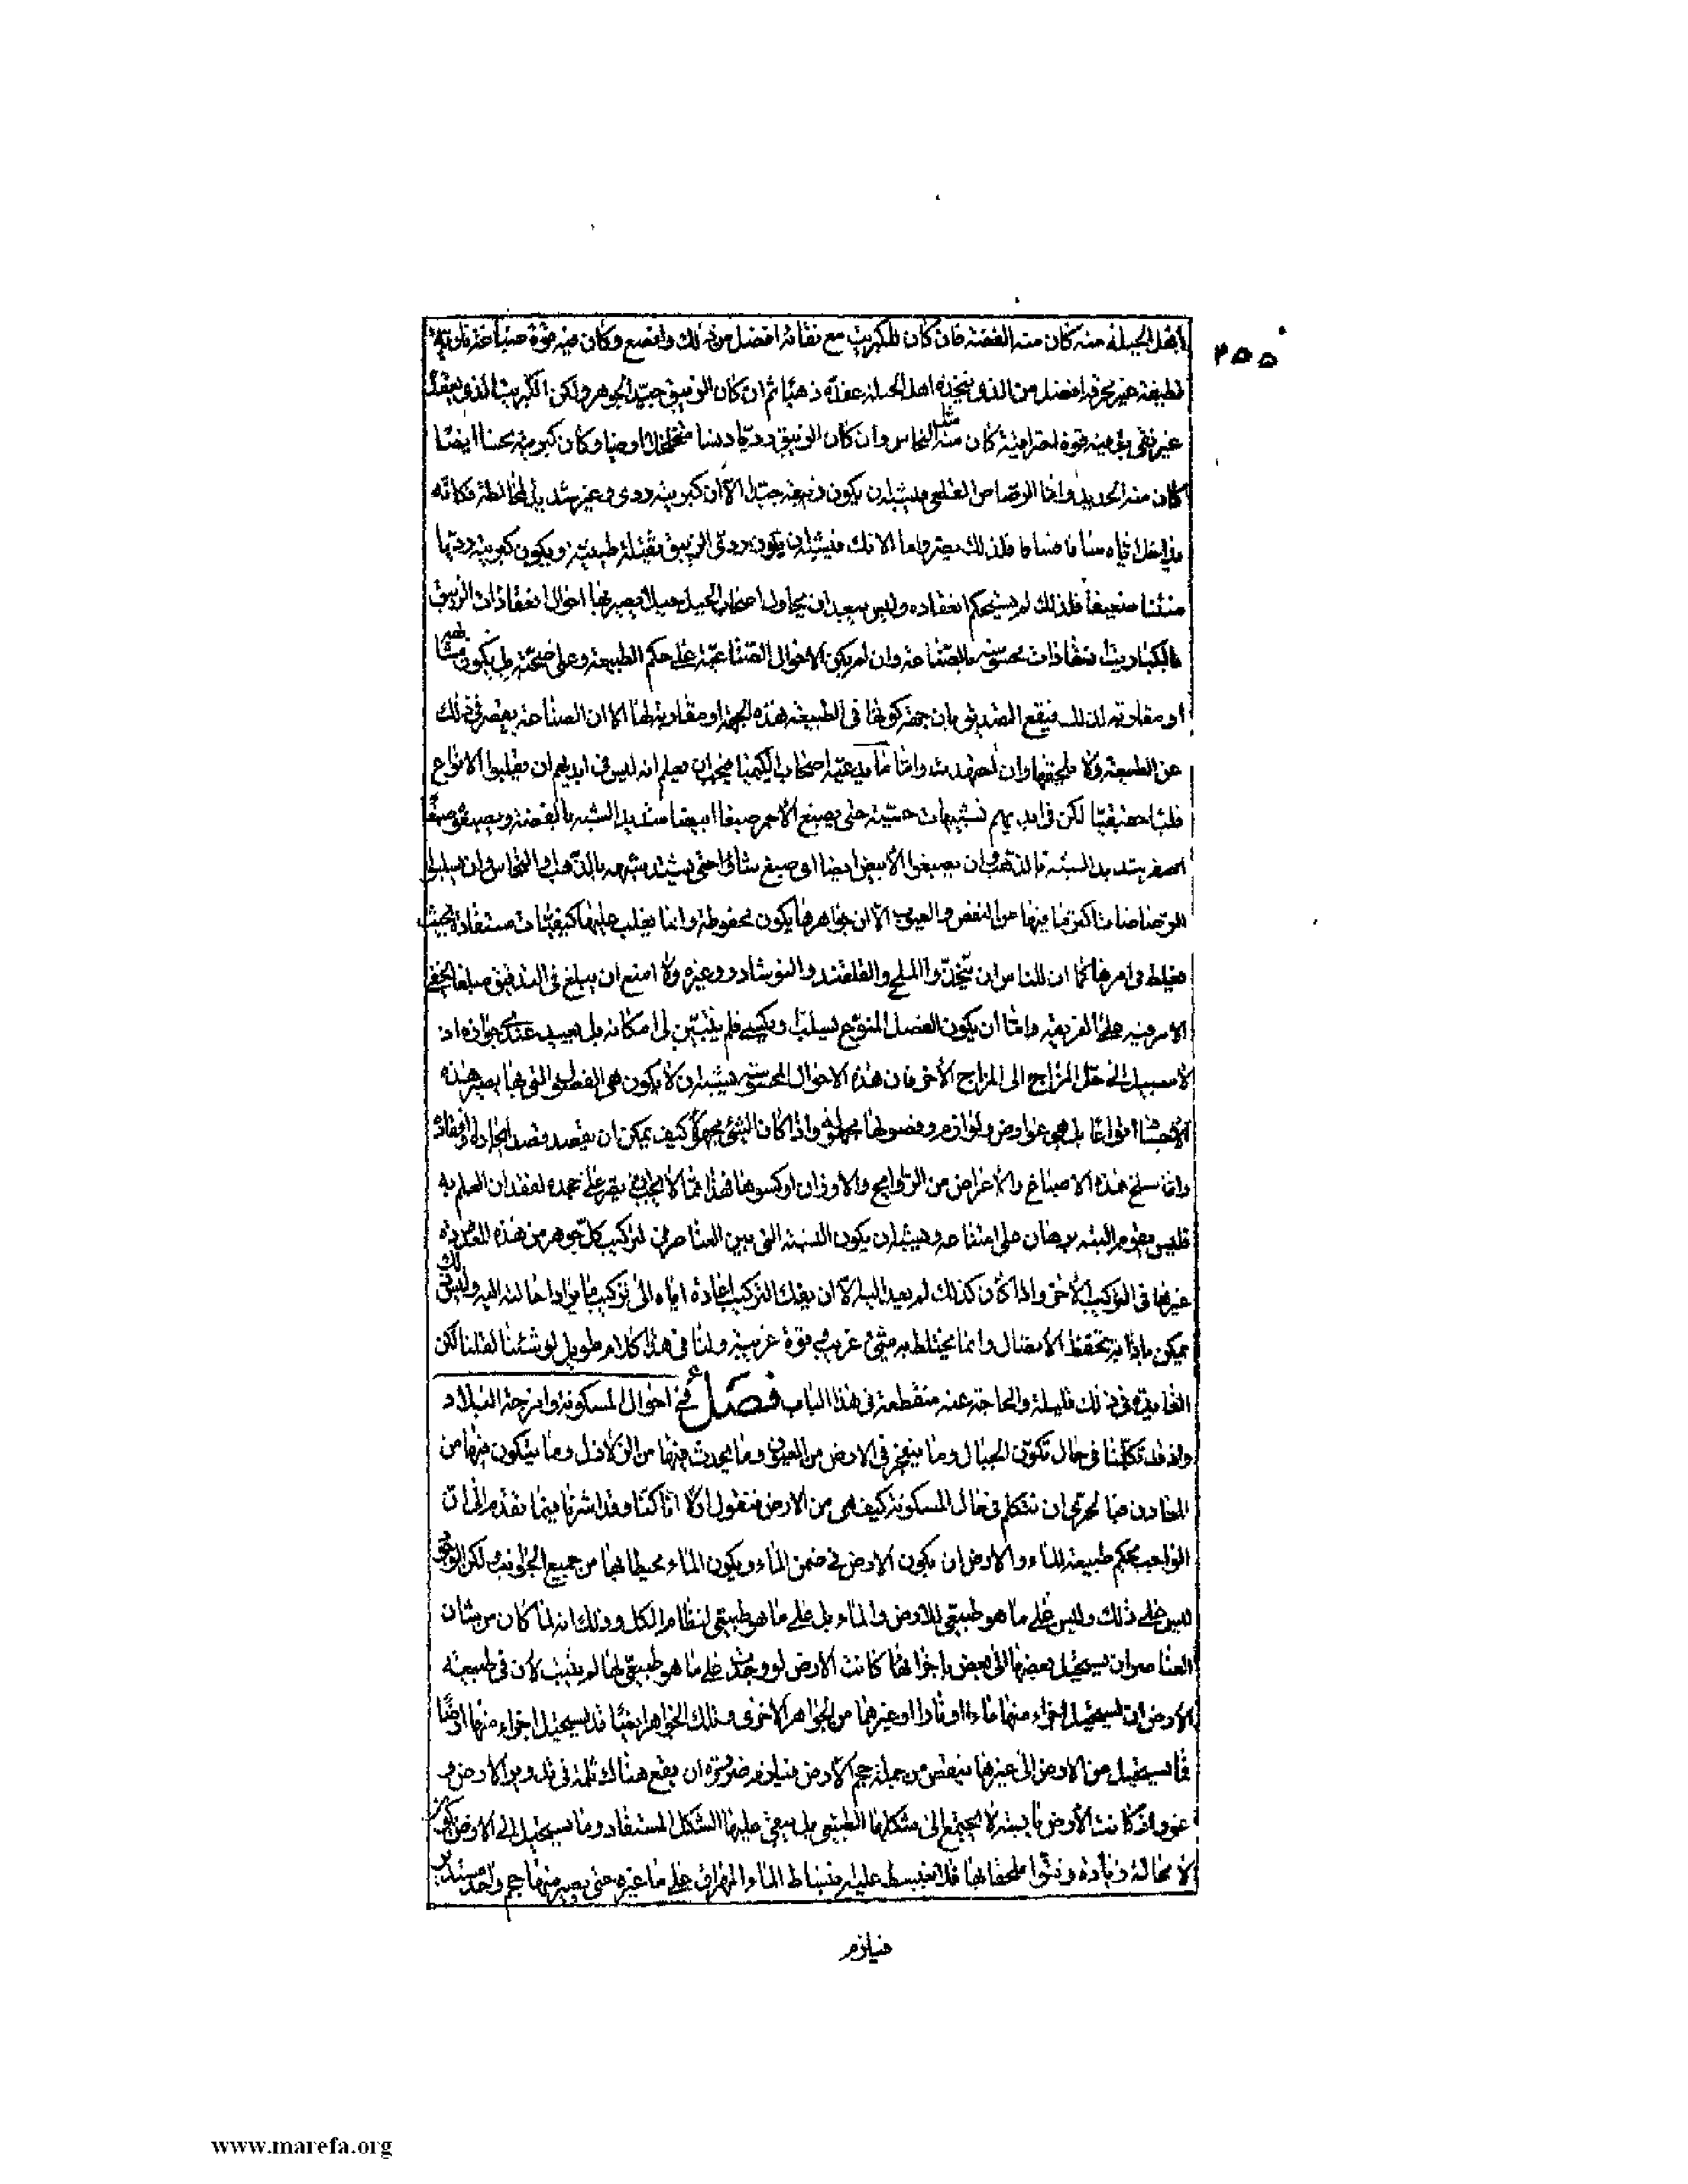 ٢٥٥
أهل الحيلة منه كان منه الفضة فان كان الكبريت مع نقائه افضل من ذلك وانصع وكان فيه قوة صباغة نارية
لطيفة غير محرقة افضل من الذى يتخذه اهل الحيلة عقده ذهبا ثم ان كان الزيبق جيّد الجوهر ولكن الكبريت الذى يعقده
غير نقى بل فيه قوة احتراقية كان منه مثل النحاس وان كان الزيبق رديّا دنسا متخلخلا ارضيا وكان كبريته نجسا ايضا
كان منه الحديد وامّا الرصاص القلعى فيشبه ان يكون زيبقه جيّدا الّا ان كبريته ردى وغير شديد المخالطة فكانّه
مداخل ايّاه سافا سافا فلذلك يصرّ واما الآنك فيشبه ان يكون ردى الزيبق ثقيله طينيّه ويكون كبريته رديّا
منتنا ضعيفا فلذلك لم يستحكم انعقاده وليس ببعيد ان يحاول اصحاب الحيل حيلا يصير بها احوال انعقادات الزيبق
بالكباريت انعقادات محسوسة بالصناعة وان لم يكن الاحوال الصناعيّة على حكم الطبيعة وعلى صحّته بل يكون مشابهة
او مقاربة لذلك فيقع التصديق بان جهة كونها فى الطبيعة هذه الجهة او مقاربة لها الا ان الصناعة يقصر فى ذلك
عن الطبيعة ولا تلحقها وان اجتهدت وامّا ما يدعيه اصحاب الكيميا فيجب ان يعلم انه ليس فى ايديهم ان يقلبوا الانواع
قلبا حقيقيّا لكن فى ايديهم تشبيهات حسّيّة حتى يصبغ الاحمر صبغا ابيض شديد الشبه بالفضة ويصبغوه صبغا
اصفر شديد الشبه بالذهب وان يصبغوا الابيض ايضا اى صبغ شاؤا حتى يشتد شبهه بالذهب او النحاس وان يسلبوا
الرصاصات اكثر ما فيها من النقص والعيوب الّا ان جواهرها يكون محفوظة وانما يغلب عليها كيفيّات مستفادة بحيث
يغلط فى امرها كما ان للناس ان يتخذوا الملح والقلقند والنوشادر وغيره ولا امنع ان يبلغ فى التدقيق مبلغا يخفى
الامر فيه على الفرهة وامّا ان يكون الفصل المنوّع يسلب او يكسى فلم يتبيّن لى امكانه بل بعيد عندى جوازه اذ
لا سبيل الى حلّ المزاج الى المزاج الاخر فان هذه الاحوال المحسوسة يشبه ان لا يكون هى الفصول التى بها يصير هذه
الاجساد انواعا بل هى عوارض ولوازم وفصولها مجهولة واذا كان الشئ مجهولا كيف يمكن ان يقصد قصد ايجاده او افقاده
وامّا سلخ هذه الاصباغ والاعراض من الروايح والاوزان او كسوها فهذا ممّا لا يجب ان يصرّ على جحده لفقدان العلم به
فليس يقوم البتة برهان على امتناعه ويشبه ان يكون النسبة التى بين العناصر فى تركيب كلّ جوهر من هذه المعدودة
غيرها فى التركيب الاخر واذا كان كذلك لم يعد اليه الّا ان يفك التركيب اعادة اياه الى تركيب ما يراد احالته اليه وليس ذلك
يمكن باذابة تحفظ الاتصال وانما يختلط به شئ غريب او قوة غريبة ولنا فى هذا كلام طويل لو شئنا لقلنا لكن
الفائدة فى ذلك قليلة والحاجة عنه منقطعة فى هذا الباب فصل فى احوال المسكونة وامزجة البلاد
واذ قد تكلّمنا فى حال تكوّن الجبال وما ينفجر فى الارض من العيون وما يحدث فيها من الزلازل وما يتكون فيها من
المعادن فبالحرى ان نتكلم فى حال المسكونة كيف هى من الارض فنقول انّا كنّا وقد اشرنا فيما تقدم الى ان
الواجب بحكم طبيعة الماء والارض ان يكون الارض فى ضمن الماء ويكون الماء محيطا بها من جميع الجوانب لكن الوجود
ليس على ذلك وليس على ما هو طبيعى للارض والماء بل على ما هو طبيعى لنظام الكل وذلك انه لما كان من شان
العناصر ان يستحيل بعضها الى بعض باجزائها كانت الارض لو وجدت على ما هو طبيعى لها لم يثبت لان فى طبيعة
الارض ان يستحيل اجزاء منها ماء او نارا او غيرهما من الجواهر الاخرى وتلك الجواهر ايضا قد يستحيل اجزاء منها ارضا
فما يستحيل من الارض الى غيرها ينقص من جملة حجم الارض فيلزم ضرورة ان يقع هناك ثلمة فى تدوير الارض و
غور اذ كانت الارض يابسة لا يجتمع الى شكلها الطبيعى بل يبقى عليها الشكل المستفاد وما يستحيل الى الارض يكون
لا محالة زيادة ونتوّا ملحقا بها فلا ينبسط عليه انبساط الماء المهراق على ماء غيره حتى يصير منها حجم واحد مستدير
فيلزم
www.marefa.org